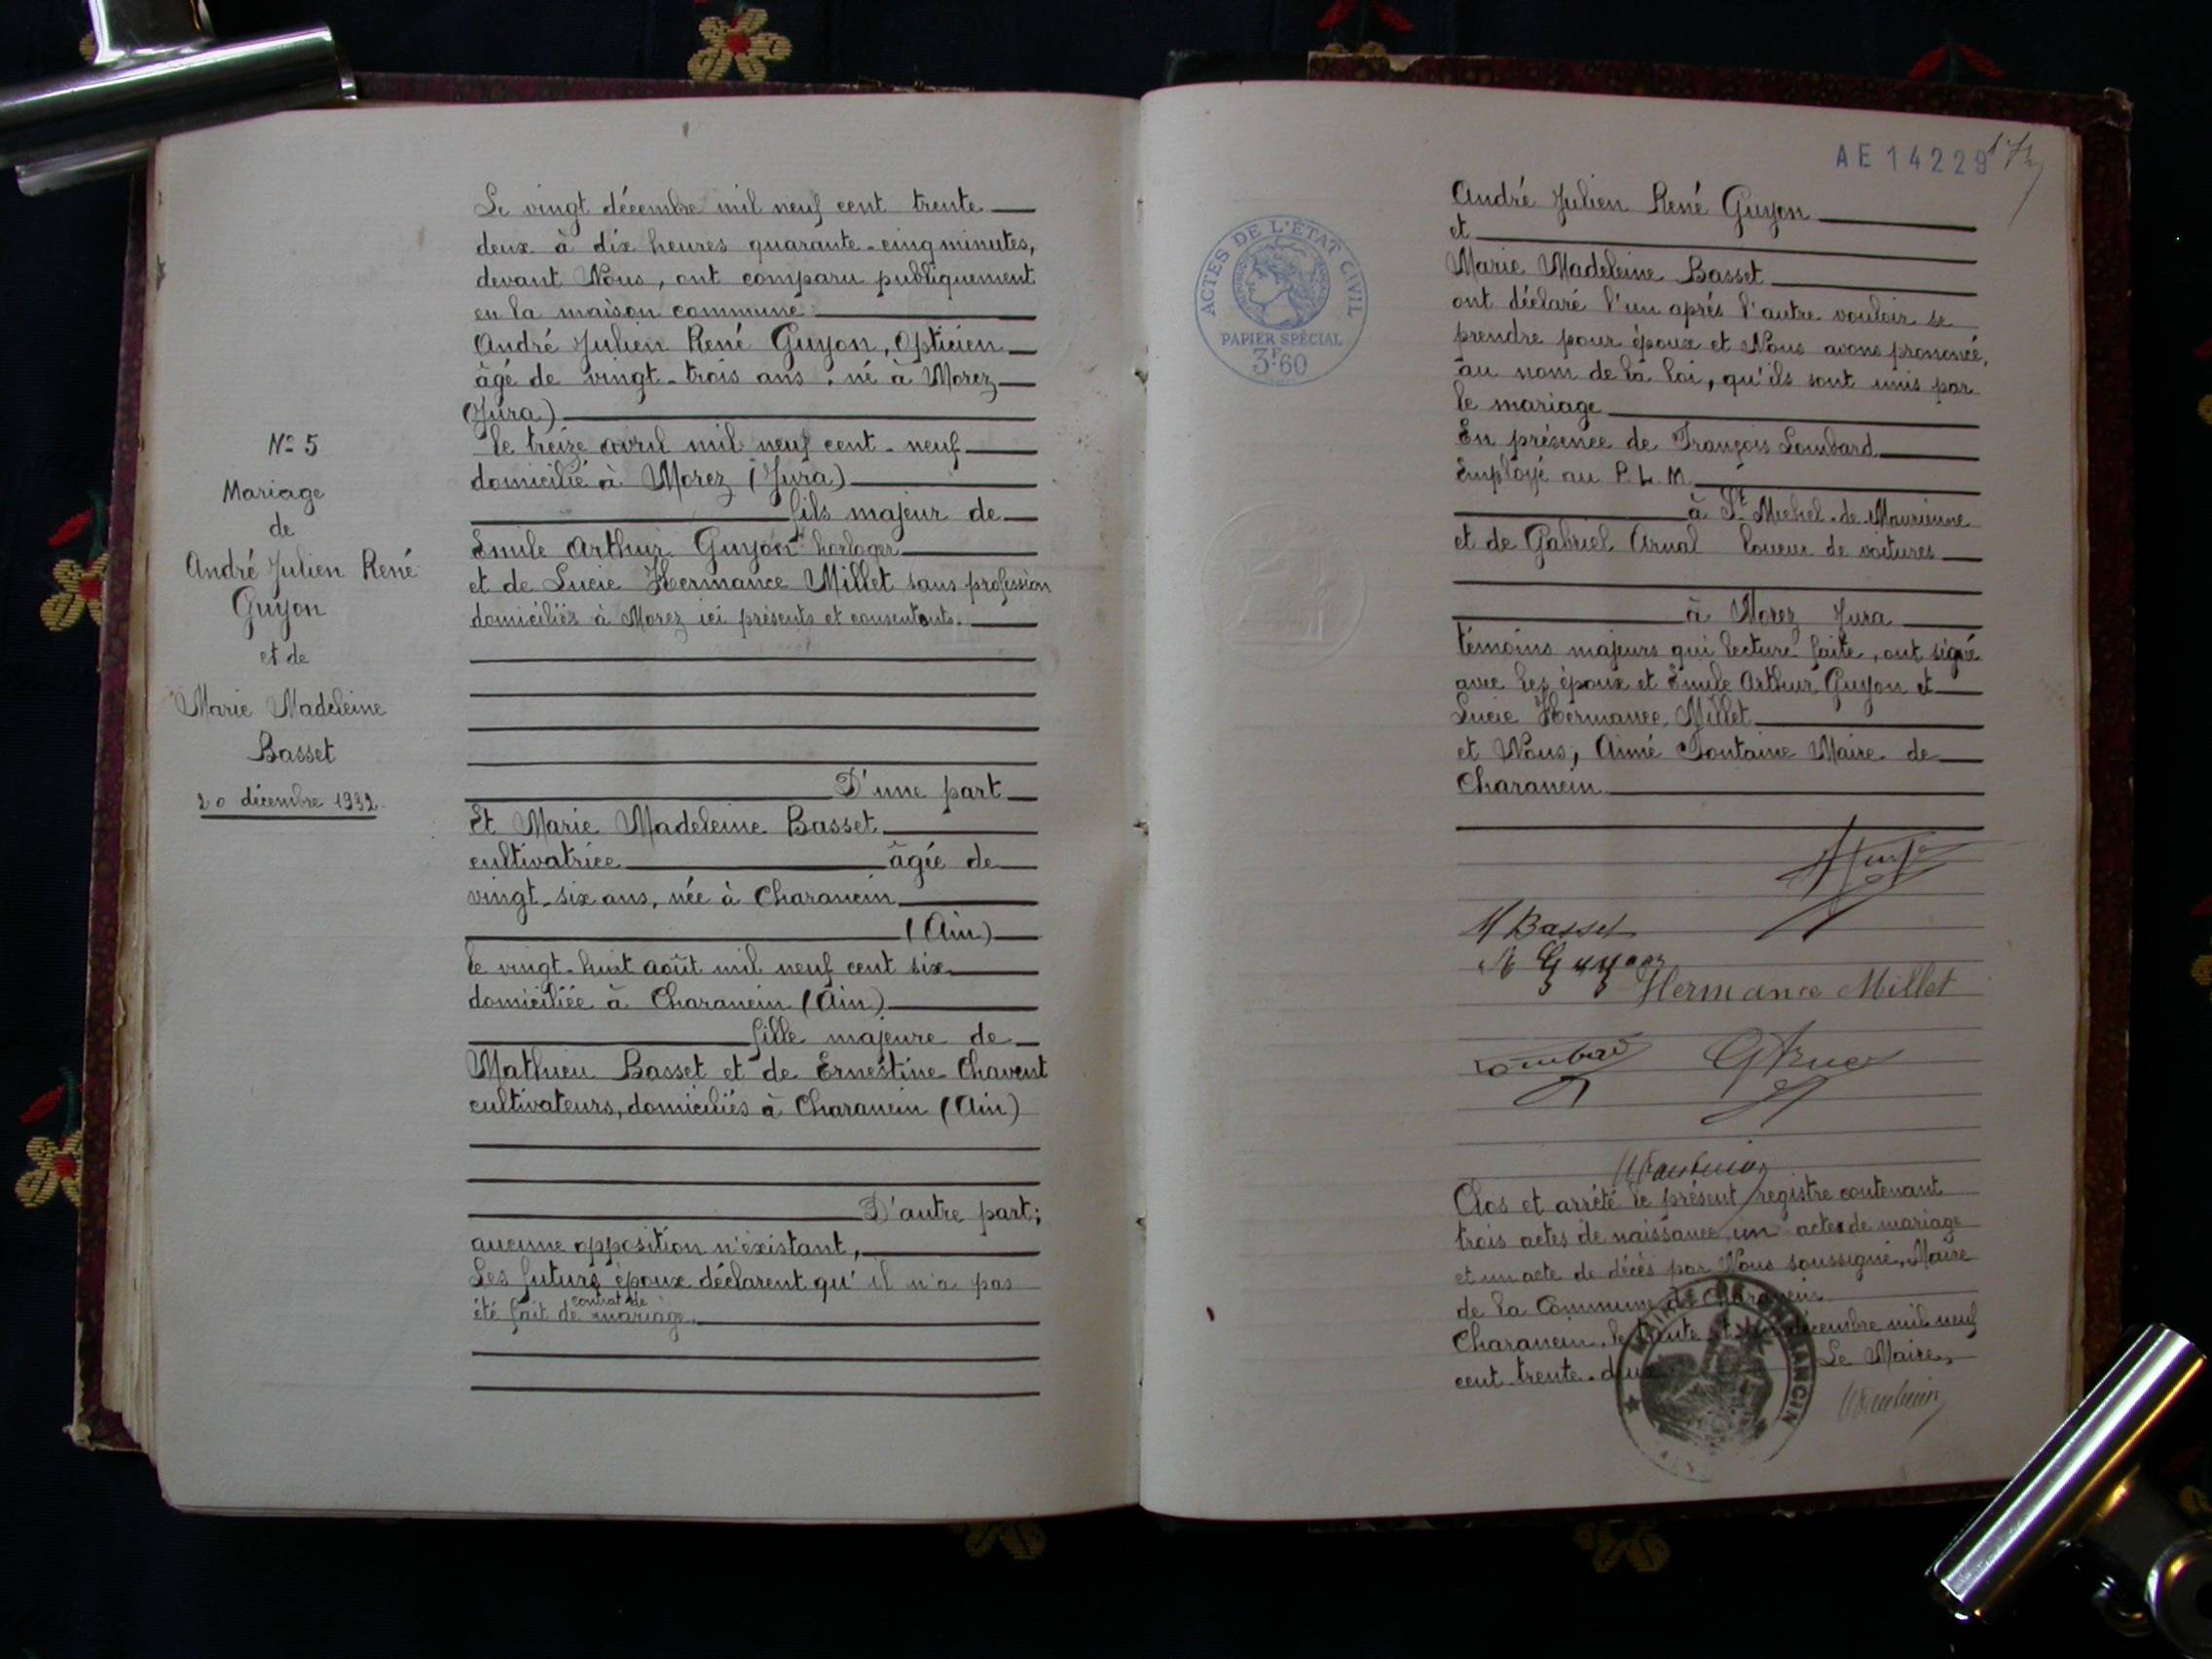 N° 5
Mariage
de
André Julien René
Guyon
et de
Marie Madeleine
Basset
20 décembre 1932.
Le vingt décembre mil neuf cent trente
deux à dix heures quarante-cinq minutes,
devant Nous, ont comparu publiquement
en la maison commune
André Julien René Guyon, Opticien
âgé de vingt-trois ans, né à Morez
(Jura)
le treize avril mil neuf cent-neuf
domicilié à Morez (Jura)
fils majeur de
Emile Arthur Guyon horloger
et de Lucie Hermance Millet sans profession
domiciliés à Morez ici présents et consentants.
D'une part
Et Marie Madeleine Basset
cultivatrice âgée de
vingt-six ans, née à Charancin
(Ain)
le vingt-huit août mil neuf cent six
domiciliée à Charancin (Ain)
fille majeure de
Mathieu Basset et de Ernestine Chavent
cultivateurs, domiciliés à Charancin (Ain)
D'autre part;
aucune opposition n'existant,
Les futurs époux déclarent qu'il n'a pas
contrat de
été fait de mariage.
AE 14229
ACTES DE L'ÉTAT CIVIL
PAPIER SPÉCIAL
3F.60
André Julien René Guyon
et
Marie Madeleine Basset
ont déclaré l'un après l'autre vouloir se
prendre pour époux et Nous avons prononcé,
au nom de la loi, qu'ils sont unis par
le mariage
En présence de François Lombard
Employé au P.L.M.
à St Michel-de-Maurienne
et de Gabriel Arnal loueur de voitures
à Morez Jura
témoins majeurs qui lecture faite, ont signé
avec les époux et Emile Arthur Guyon et
Lucie Hermance Millet
et Nous, Aimé Fontaine Maire de
Charancin
M Basset
A Guyon
Hermance Millet
Lombard
Clos et arrêté le présent registre contenant
trois actes de naissance, un actes de mariage
et un acte de décès par Nous soussigné, Maire
de la Commune de Charancin
Charancin, le trente et décembre mil neuf
cent trente-deux
Le Maire,
MAIRIE DE CHARANCIN